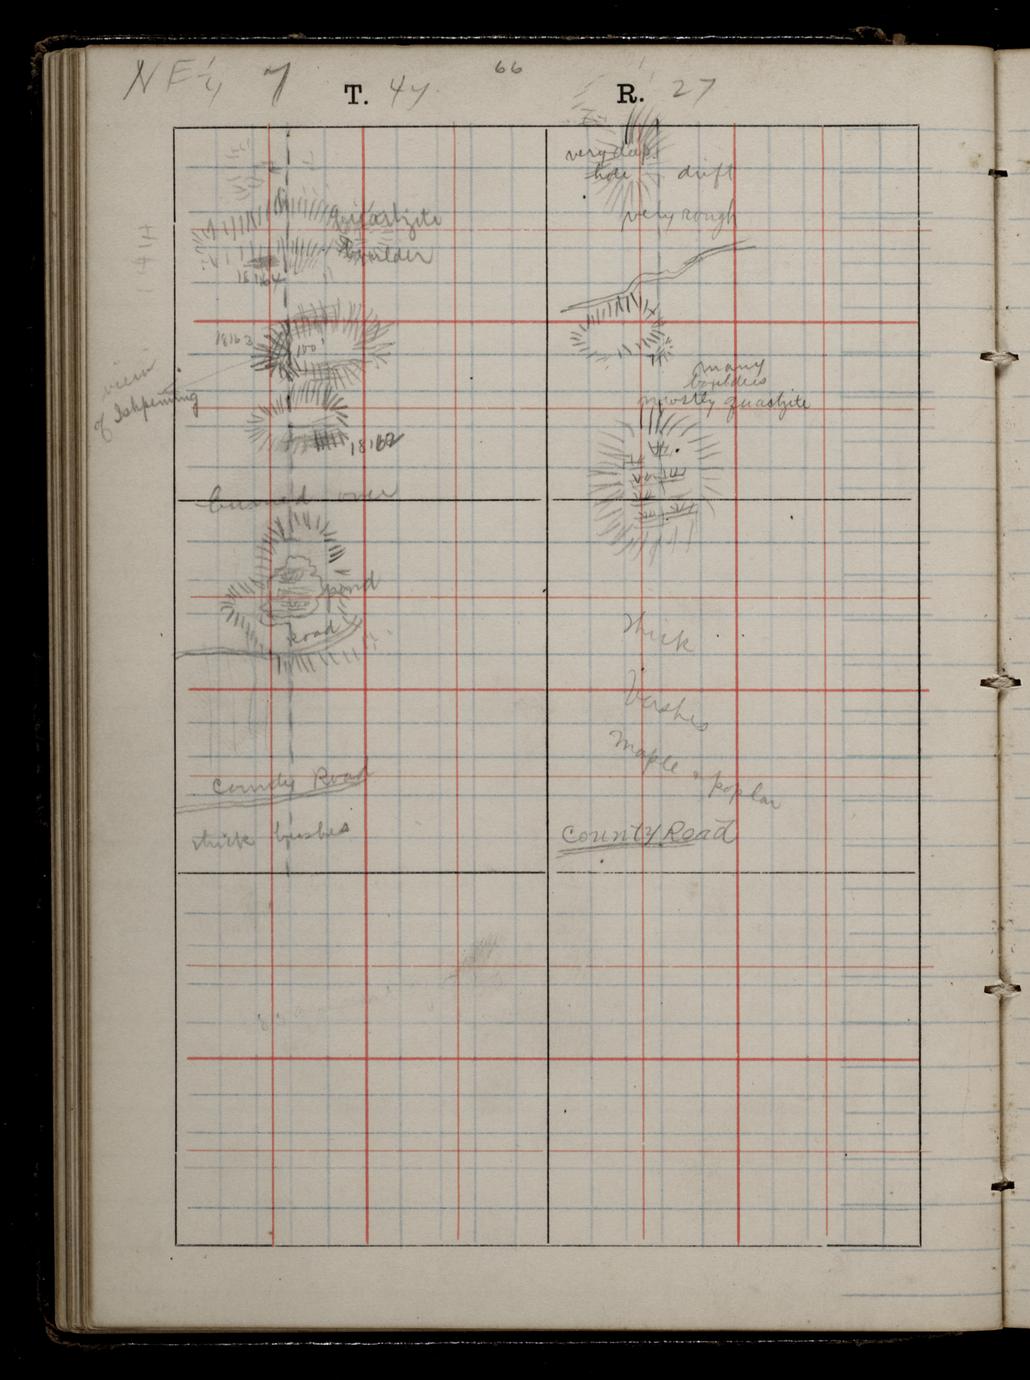 NE 1/4 7 T. 47 R. 27
66
very deep
hole drift
very rough
Quartzite
boulder
18164
18163
100'
view
of Ishpeming
18162
many
boulders
mostly quartzite
burned over
pond
Road
thick
bushes
Maple & poplar
County Road
thick bushes
County Road